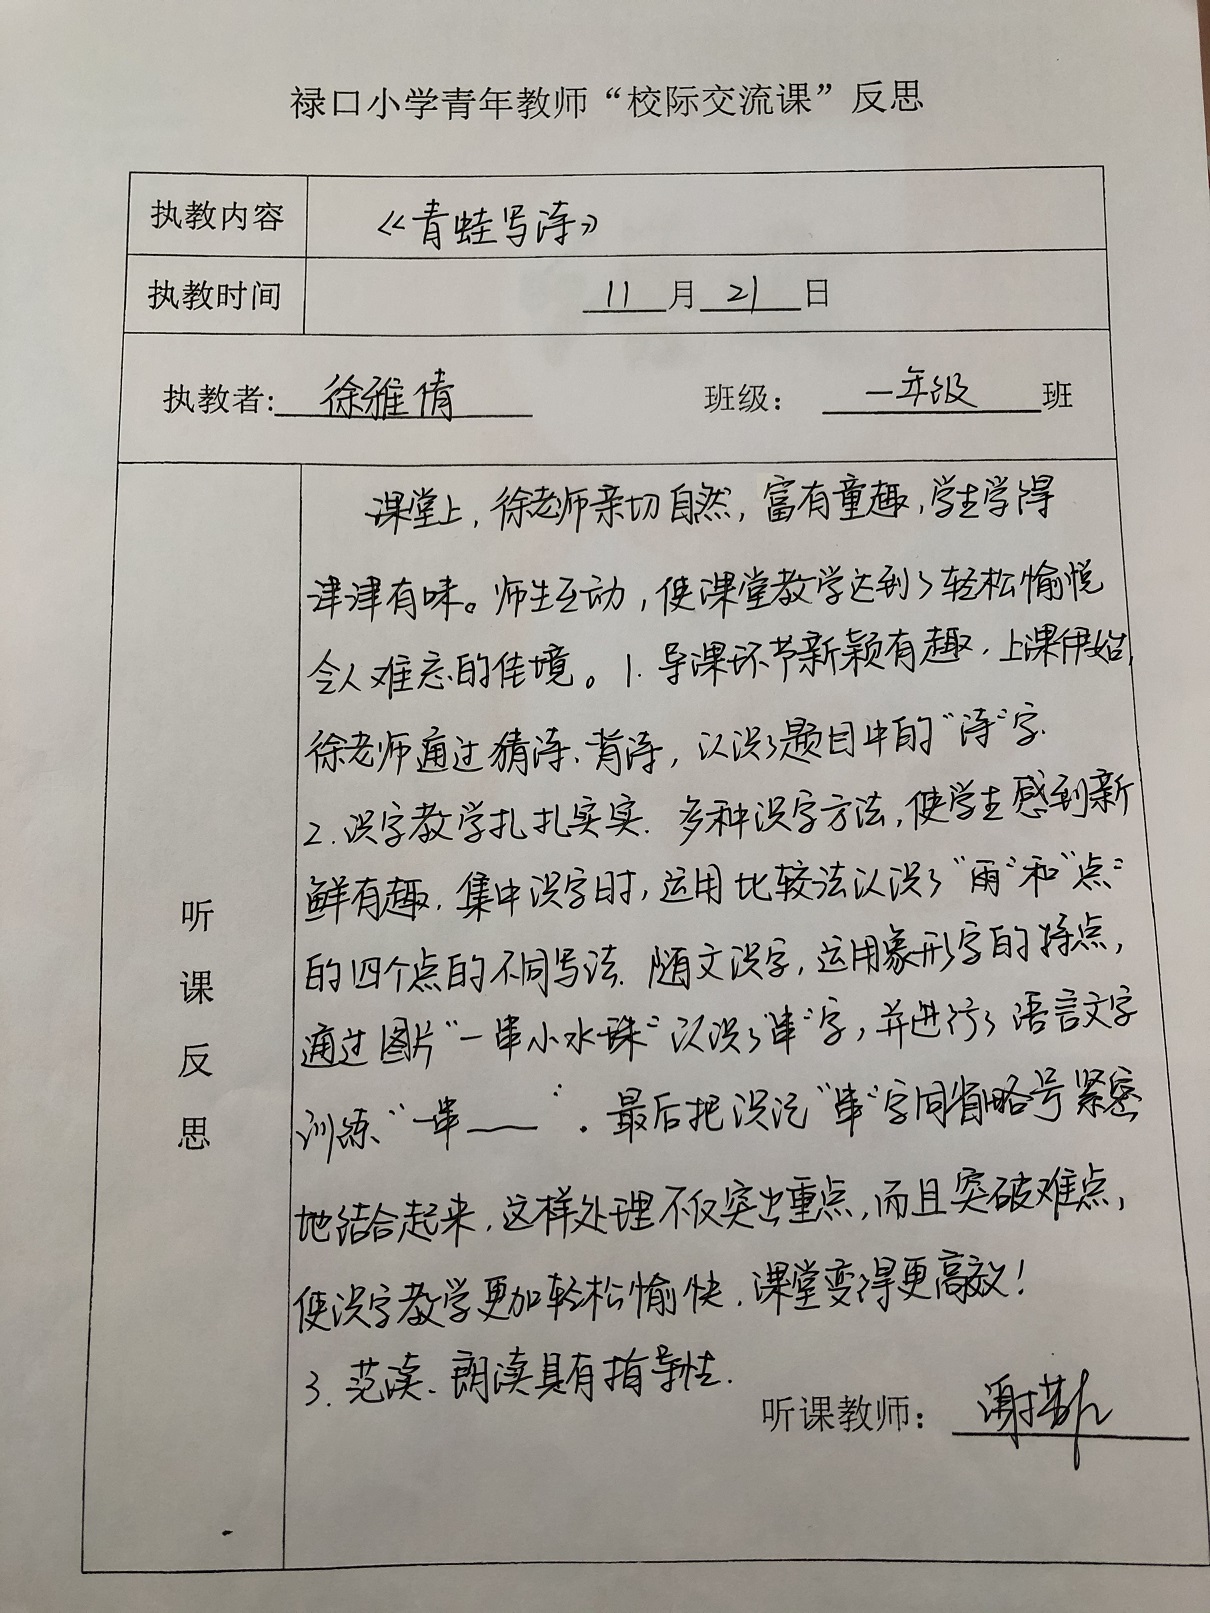 禄口小学青年教师“校际交流课”反思
执教内容 《青蛙写诗》
执教时间 11月21日
执教者:徐雅倩 班级：一年级班
听课反思
课堂上,徐老师亲切自然,富有童趣,学生学得
津津有味。师生互动,使课堂教学达到了轻松愉悦
令人难忘的佳境。1.导课环节新颖有趣.上课伊始,
徐老师通过猜诗、背诗,认识了题目中的“诗”字.
2.识字教学扎扎实实.多种识字方法,使学生感到新
鲜有趣.集中识字时,运用比较法认识了“雨”和“点”
的四个点的不同写法.随文识字,运用象形字的特点,
通过图片“一串小水珠”认识了“串”字,并进行了语言文字
训练“一串___”.最后把识记“串”字同省略号紧密
地结合起来.这样处理不仅突出重点,而且突破难点,
使识字教学更加轻松愉快.课堂变得更高效!
3.范读、朗读具有指导性.
听课教师：谢